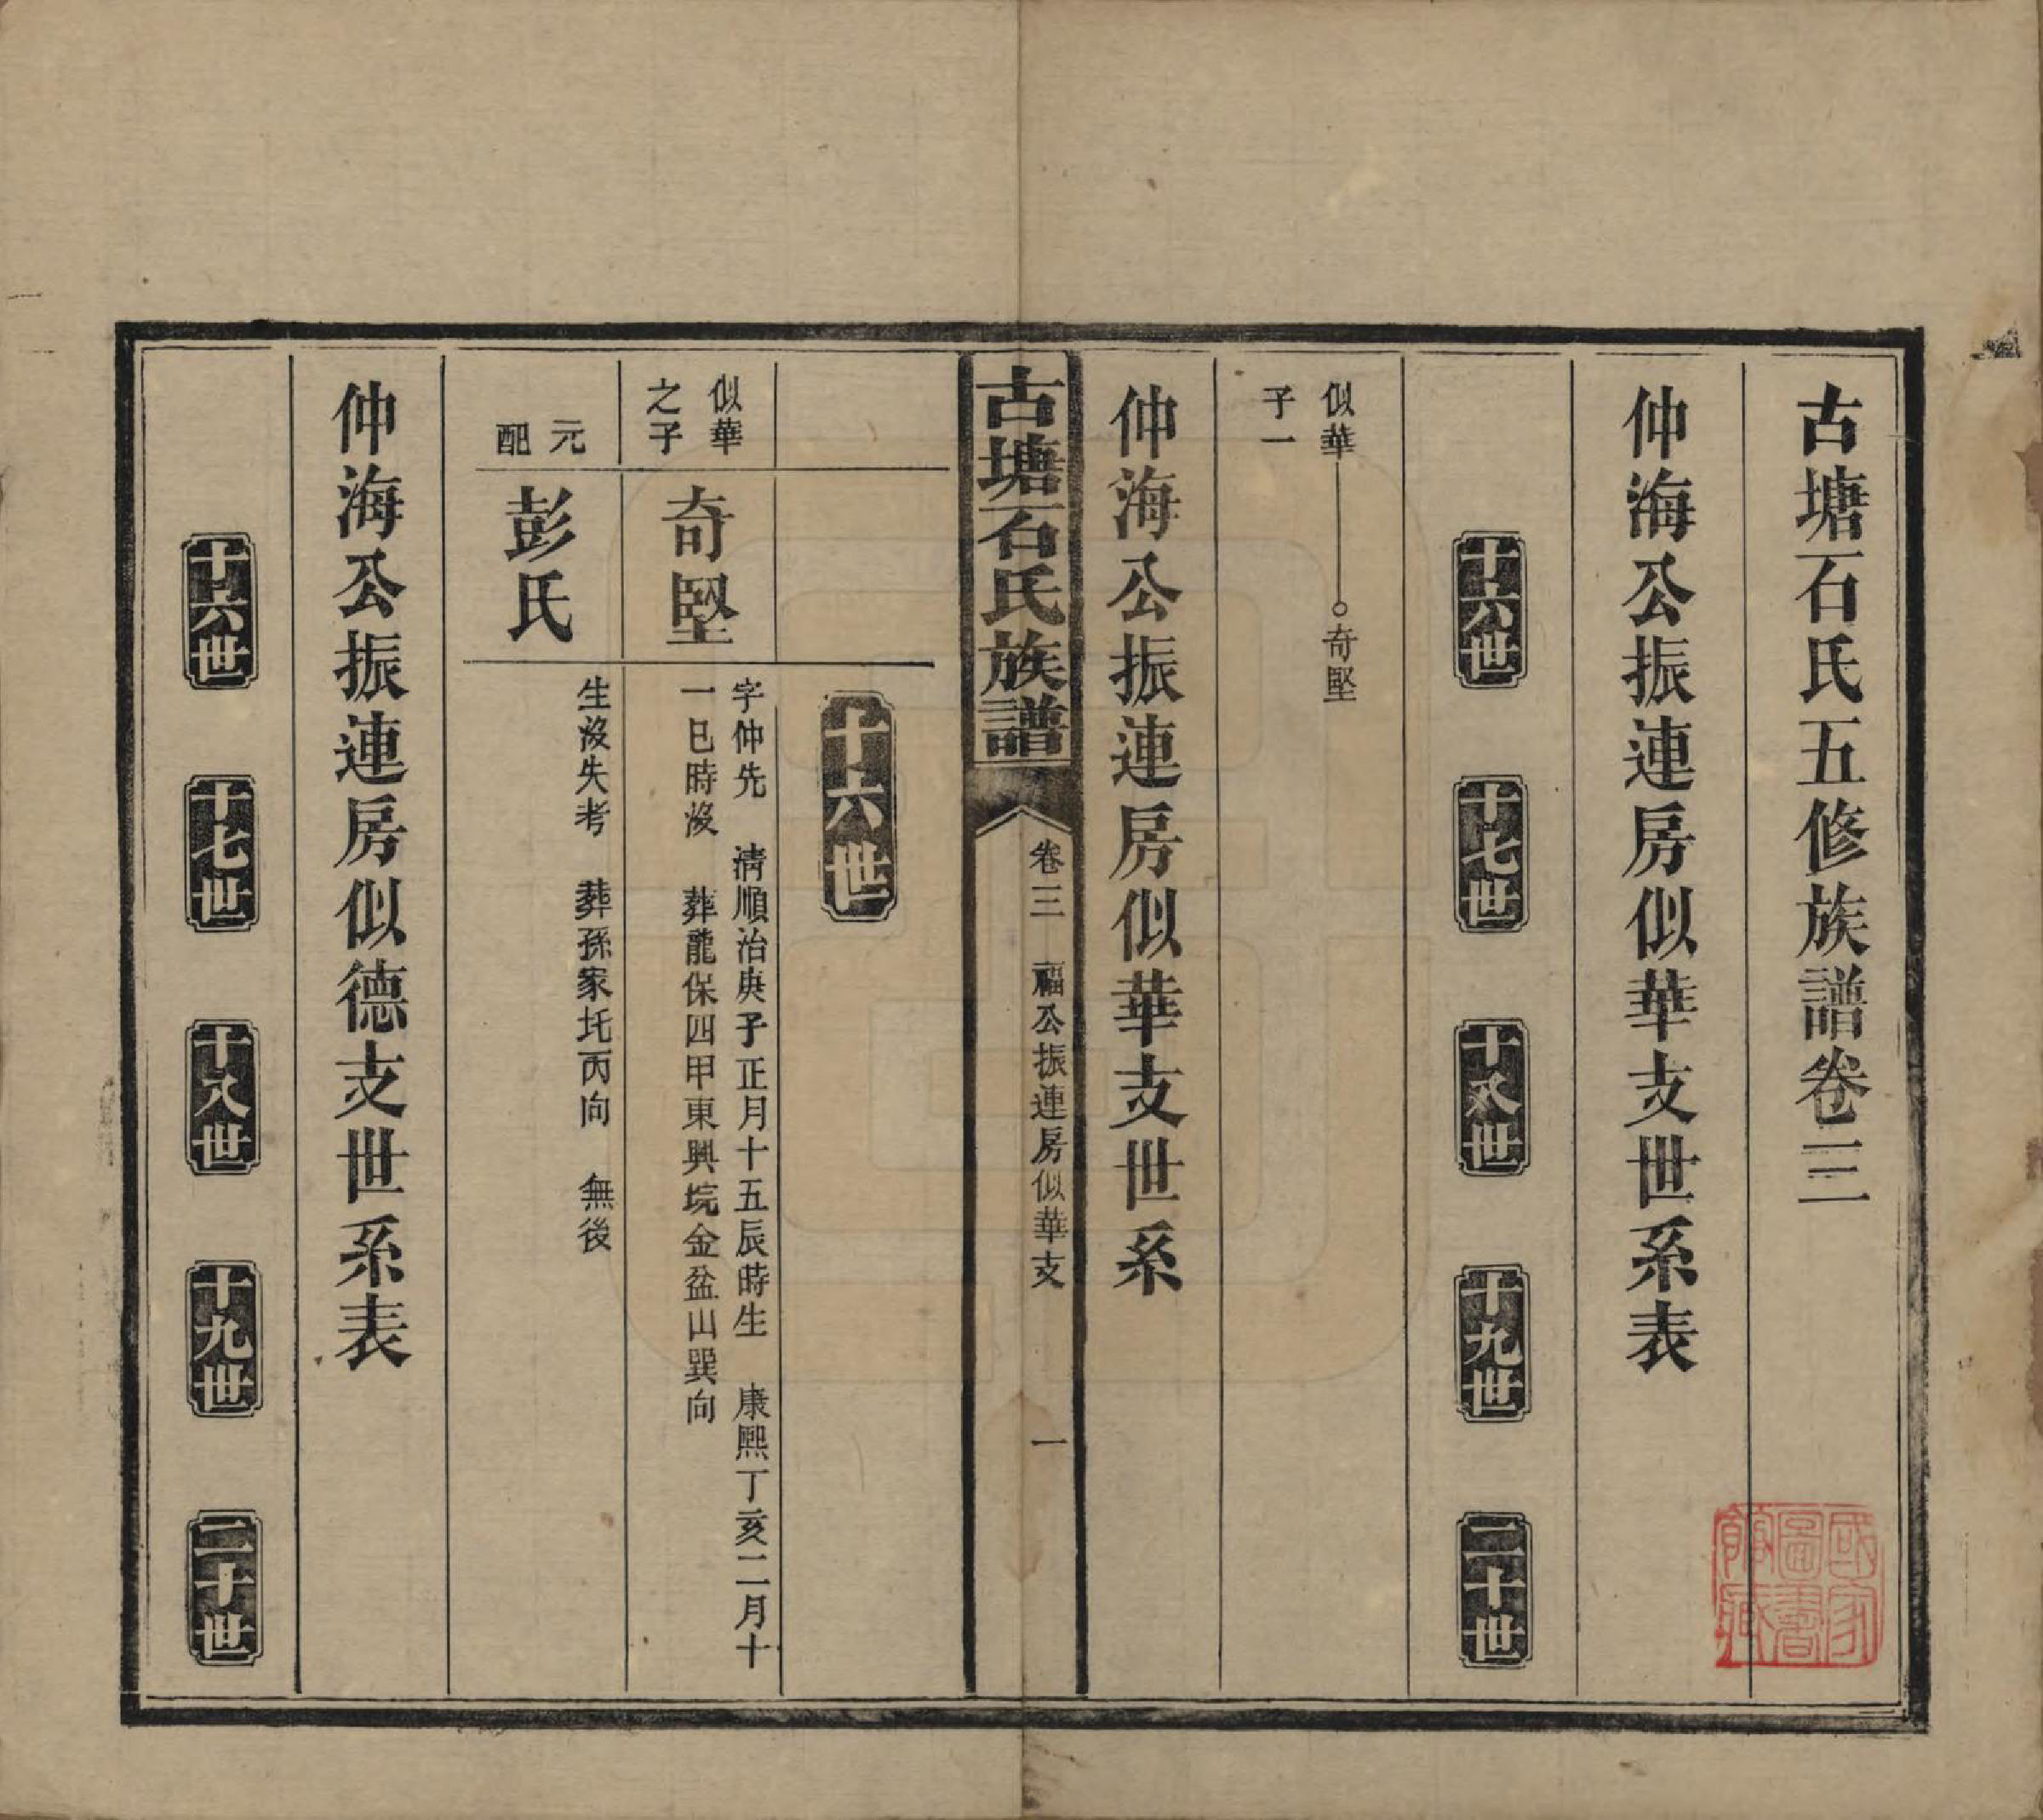 古塘石氏五修族譜卷三
仲海公振連房似華支世系表
十六世 十七世 十八世 十九世 二十世
似華 奇堅
子一
仲海公振連房似華支世系
古塘石氏族譜 卷三 福公振連房似華支 一
十六世
似華之子
奇堅
字仲先 清順治庚子正月十五辰時生 康熙丁亥二月十
一巳時沒 葬龍保四甲東興垸金盆山巽向
元配
彭氏
生沒失考 葬孫家圫丙向 無後
仲海公振連房似德支世系表
十六世 十七世 十八世 十九世 二十世
國家圖書館藏